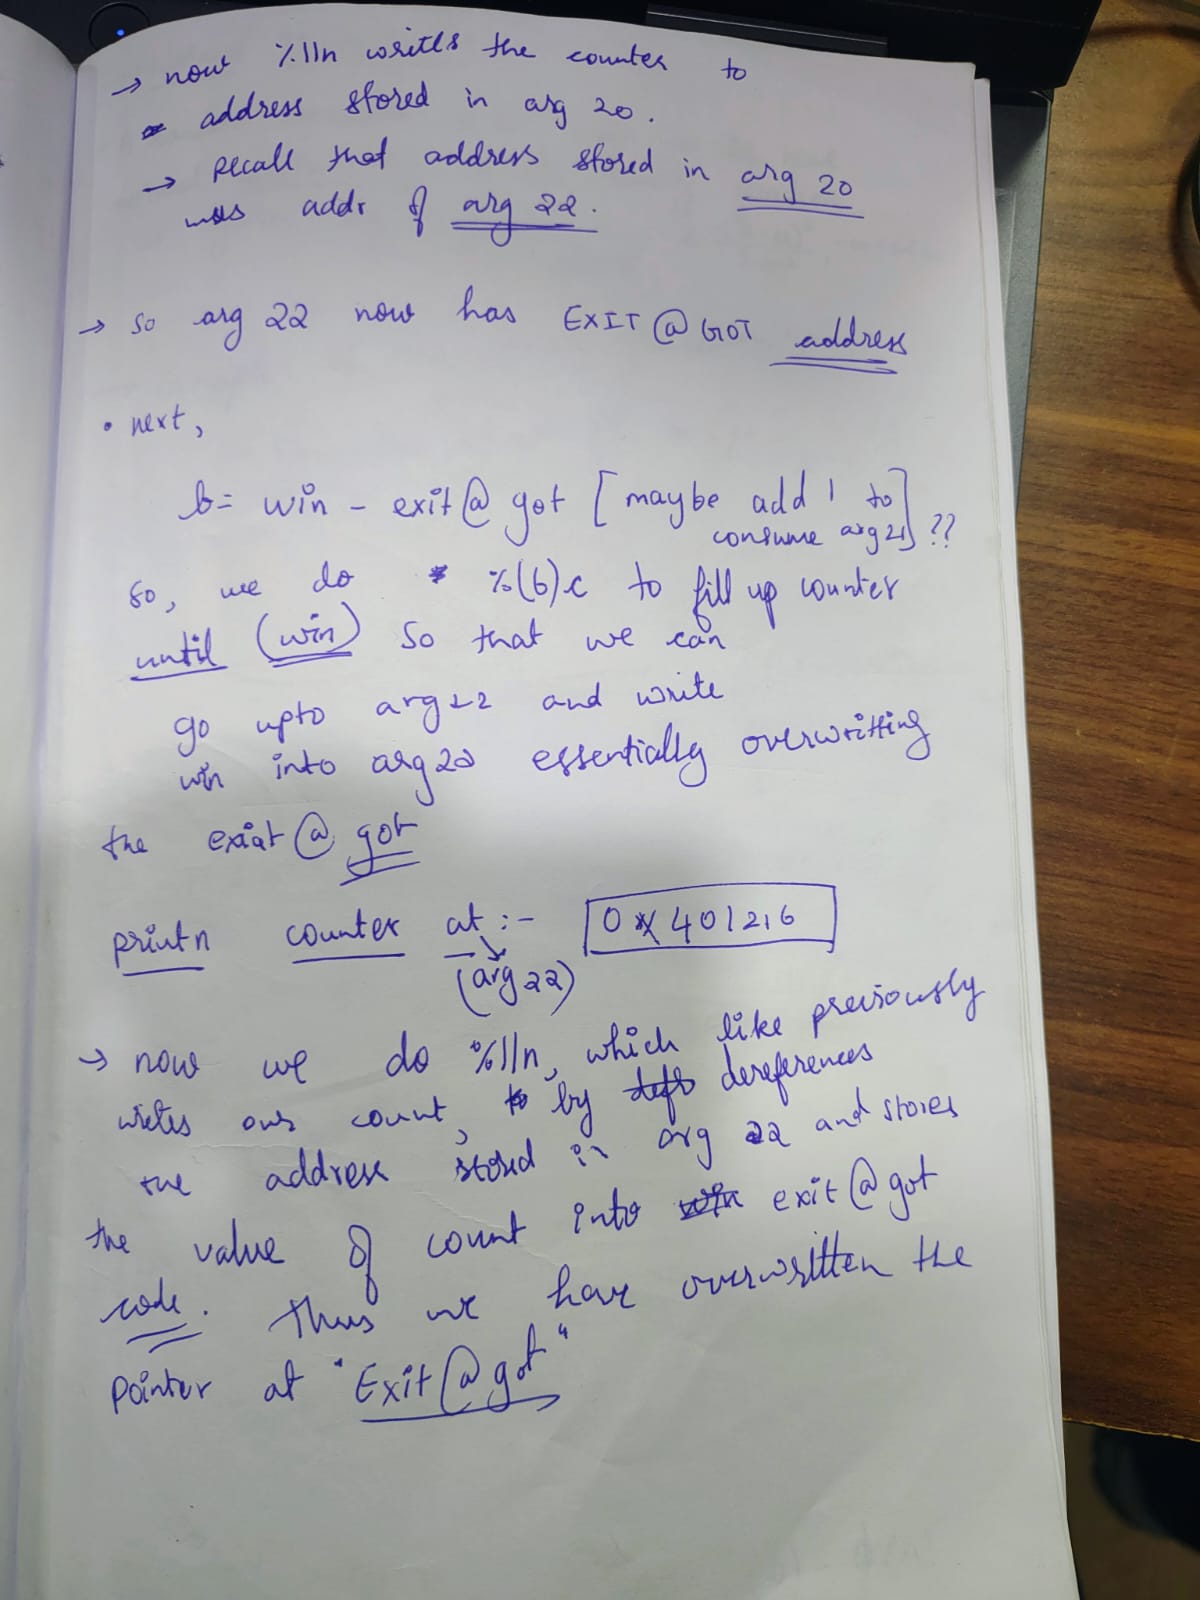 → now %lln writes the counter to
address stored in arg 20.
→ recall that address stored in arg 20
was addr of arg 22.
→ so arg 22 now has EXIT@GOT address
• next,
b= win - exit@got [maybe add 1 to
consume arg21] ??
so, we do %(b)c to fill up counter
until (win) so that we can
go upto arg22 and write
win into arg20 essentially overwritting
the exiat@got
printn counter at :- 0x401216
(arg 22)
→ now we do %lln, which like previously
writes our count, by dereferences
the address stored in arg 22 and stores
the value of count into exit@got
code. Thus we have overwritten the
pointer at "Exit@got"